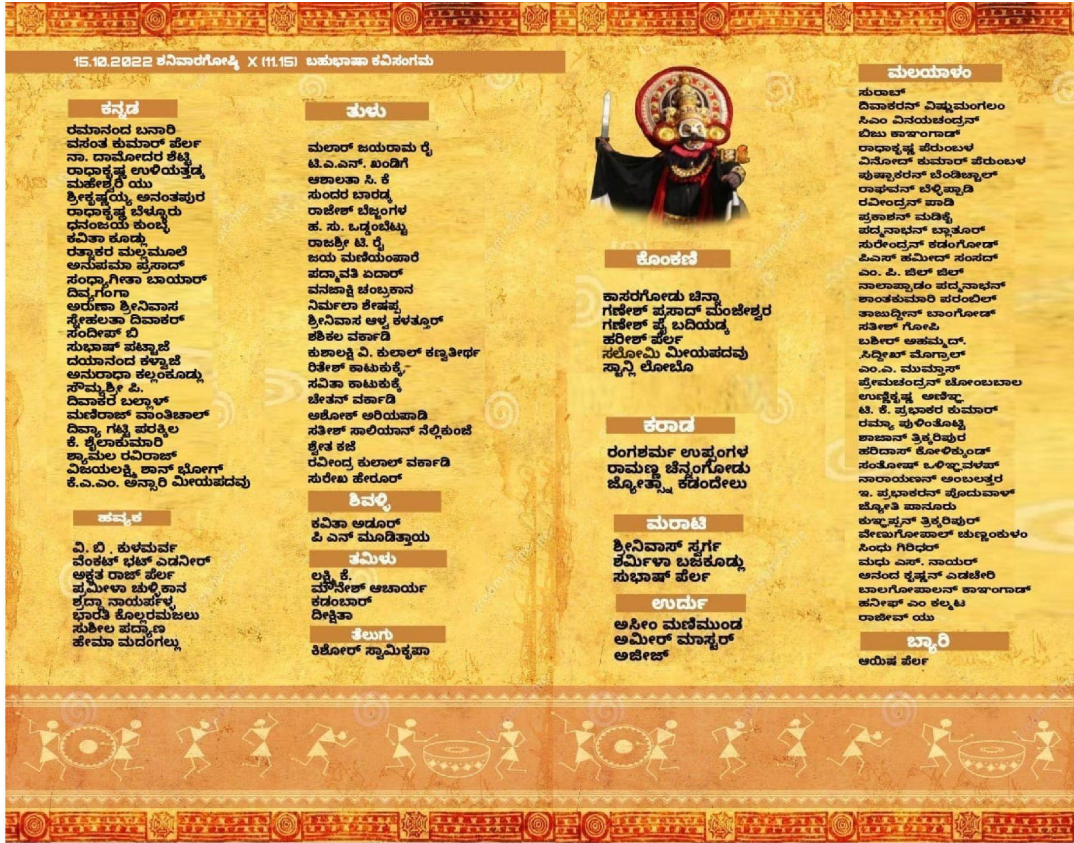 15.10.2022 ಶನಿವಾರಗೋಷ್ಠಿ X (11.15) ಬಹುಭಾಷಾ ಕವಿಸಂಗಮ
ಕನ್ನಡ
ರಮಾನಂದ ಬನಾರಿ
ವಸಂತ ಕುಮಾರ್ ಪೆರ್ಲ
ನಾ. ದಾಮೋದರ ಶೆಟ್ಟಿ
ರಾಧಾಕೃಷ್ಣ ಉಳಿಯತ್ತಡ್ಕ
ಮಹೇಶ್ವರಿ ಯು
ಶ್ರೀಕೃಷ್ಣಯ್ಯ ಅನಂತಪುರ
ರಾಧಾಕೃಷ್ಣ ಬೆಳ್ಳೂರು
ಧನಂಜಯ ಕುಂಬ್ಳೆ
ಕವಿತಾ ಕೂಡ್ಲು
ರತ್ನಾಕರ ಮಲ್ಲಮೂಲೆ
ಅನುಪಮಾ ಪ್ರಸಾದ್
ಸಂಧ್ಯಾಗೀತಾ ಬಾಯಾರ್
ದಿವ್ಯಗಂಗಾ
ಅರುಣಾ ಶ್ರೀನಿವಾಸ
ಸ್ನೇಹಲತಾ ದಿವಾಕರ್
ಸಂದೀಪ್ ಬಿ
ಸುಭಾಷ್ ಪಟ್ಟಾಜೆ
ದಯಾನಂದ ಕಳ್ವಾಜೆ
ಅನುರಾಧಾ ಕಲ್ಲಂಕೂಡ್ಲು
ಸೌಮ್ಯಶ್ರೀ ಪಿ.
ದಿವಾಕರ ಬಲ್ಲಾಳ್
ಮಣಿರಾಜ್ ವಾಂತಿಚಾಲ್
ದಿವ್ಯಾ ಗಟ್ಟಿ ಪರಕ್ಕಿಲ
ಕೆ. ಶೈಲಾಕುಮಾರಿ
ಶ್ಯಾಮಲ ರವಿರಾಜ್
ವಿಜಯಲಕ್ಷ್ಮಿ ಶಾನ್ ಭೋಗ್
ಕೆ.ಎ.ಎಂ. ಅನ್ಸಾರಿ ಮೀಯಪದವು
ಹವ್ಯಕ
ವಿ. ಬಿ . ಕುಳಮರ್ವ
ವೆಂಕಟ್ ಭಟ್ ಎಡನೀರ್
ಅಕ್ಷತ ರಾಜ್ ಪೆರ್ಲ
ಪ್ರಮೀಳಾ ಚುಳ್ಳಿಕಾನ
ಶ್ರದ್ಧಾ ನಾಯರ್ಪಳ್ಳ
ಭಾರತಿ ಕೊಲ್ಲರಮಜಲು
ಸುಶೀಲ ಪದ್ಯಾಣ
ಹೇಮಾ ಮದಂಗಲ್ಲು
ತುಳು
ಮಲಾರ್ ಜಯರಾಮ ರೈ
ಟಿ.ಎ.ಎನ್. ಖಂಡಿಗೆ
ಆಶಾಲತಾ ಸಿ. ಕೆ
ಸುಂದರ ಬಾರಡ್ಕ
ರಾಜೇಶ್ ಬೆಜ್ಜಂಗಳ
ಹ. ಸು. ಒಡ್ಡಂಬೆಟ್ಟು
ರಾಜಶ್ರೀ ಟಿ. ರೈ
ಜಯ ಮಣಿಯಂಪಾರೆ
ಪದ್ಮಾವತಿ ಏದಾರ್
ವನಜಾಕ್ಷಿ ಚಂಬ್ರಕಾನ
ನಿರ್ಮಲಾ ಶೇಷಪ್ಪ
ಶ್ರೀನಿವಾಸ ಆಳ್ವ ಕಳತ್ತೂರ್
ಶಶಿಕಲ ವರ್ಕಾಡಿ
ಕುಶಾಲಕ್ಷಿ ವಿ. ಕುಲಾಲ್ ಕಣ್ವತೀರ್ಥ
ರಿತೇಶ್ ಕಾಟುಕುಕ್ಕೆ
ಸವಿತಾ ಕಾಟುಕುಕ್ಕೆ
ಚೇತನ್ ವರ್ಕಾಡಿ
ಅಶೋಕ್ ಅರಿಯಪಾಡಿ
ಸತೀಶ್ ಸಾಲಿಯಾನ್ ನೆಲ್ಲಿಕುಂಜೆ
ಶ್ವೇತ ಕಜೆ
ರವೀಂದ್ರ ಕುಲಾಲ್ ವರ್ಕಾಡಿ
ಸುರೇಖ ಹೇರೂರ್
ಶಿವಳ್ಳಿ
ಕವಿತಾ ಅಡೂರ್
ಪಿ ಎನ್ ಮೂಡಿತ್ತಾಯ
ತಮಿಳು
ಲಕ್ಷ್ಮಿ ಕೆ.
ಮೌನೇಶ್ ಆಚಾರ್ಯ
ಕಡಂಬಾರ್
ದೀಕ್ಷಿತಾ
ತೆಲುಗು
ಕಿಶೋರ್ ಸ್ವಾಮಿಕೃಪಾ
ಕೊಂಕಣಿ
ಕಾಸರಗೋಡು ಚಿನ್ನಾ
ಗಣೇಶ್ ಪ್ರಸಾದ್ ಮಂಜೇಶ್ವರ
ಗಣೇಶ್ ಪೈ ಬದಿಯಡ್ಕ
ಹರೀಶ್ ಪೆರ್ಲ
ಸಲೋಮಿ ಮೀಯಪದವು
ಸ್ಟಾನ್ಲಿ ಲೋಬೊ
ಕರಾಡ
ರಂಗಶರ್ಮ ಉಪ್ಪಂಗಳ
ರಾಮಣ್ಣ ಚೆನ್ನಂಗೋಡು
ಜ್ಯೋತ್ಸ್ನಾ ಕಡಂದೇಲು
ಮರಾಟಿ
ಶ್ರೀನಿವಾಸ್ ಸ್ವರ್ಗ
ಶರ್ಮಿಳಾ ಬಜಕೂಡ್ಲು
ಸುಭಾಷ್ ಪೆರ್ಲ
ಉರ್ದು
ಅಸೀಂ ಮಣಿಮುಂಡ
ಅಮೀರ್ ಮಾಸ್ಟರ್
ಅಜೀಜ್
ಮಲಯಾಳಂ
ಸುರಾಬ್
ದಿವಾಕರನ್ ವಿಷ್ಣುಮಂಗಲಂ
ಸಿಎಂ ವಿನಯಚಂದ್ರನ್
ಬಿಜು ಕಾಞಂಗಾಡ್
ರಾಧಾಕೃಷ್ಣ ಪೆರುಂಬಳ
ವಿನೋದ್ ಕುಮಾರ್ ಪೆರುಂಬಳ
ಪುಷ್ಪಾಕರನ್ ಬೆಂಡಿಚ್ಚಾಲ್
ರಾಘವನ್ ಬೆಳ್ಳಿಪ್ಪಾಡಿ
ರವೀಂದ್ರನ್ ಪಾಡಿ
ಪ್ರಕಾಶನ್ ಮಡಿಕೈ
ಪದ್ಮನಾಭನ್ ಬ್ಲಾತೂರ್
ಸುರೇಂದ್ರನ್ ಕಡಂಗೋಡ್
ಪಿಎಸ್ ಹಮೀದ್ ಸಂಸದ್
ಎಂ. ಪಿ. ಜಿಲ್ ಜಿಲ್
ನಾಲಾಪ್ಪಾಡಂ ಪದ್ಮನಾಭನ್
ಶಾಂತಕುಮಾರಿ ಪರಂಬಿಲ್
ತಾಜುದ್ದೀನ್ ಬಾಂಗೋಡ್
ಸತೀಶ್ ಗೋಪಿ
ಬಶೀರ್ ಅಹಮ್ಮದ್.
ಸಿದ್ದೀಖ್ ಮೊಗ್ರಾಲ್
ಎಂ.ಎ. ಮುಮ್ತಾಸ್
ಪ್ರೇಮಚಂದ್ರನ್ ಚೋಂಬಬಾಲ
ಉಣ್ಣಿಕೃಷ್ಣ ಅಣಿಞ್ಞ
ಟಿ. ಕೆ. ಪ್ರಭಾಕರ ಕುಮಾರ್
ರಮ್ಯಾ ಪುಳಿಂತೊಟ್ಟಿ
ಶಾಜಾನ್ ತ್ರಿಕ್ಕರಿಪುರ
ಹರಿದಾಸ್ ಕೋಳಿಕ್ಕುಂಡ್
ಸಂತೋಷ್ ಒಳಿಞ್ಞವಳಪ್
ನಾರಾಯಣನ್ ಅಂಬಲತ್ತರ
ಇ. ಪ್ರಭಾಕರನ್ ಪೊದುವಾಳ್
ಜ್ಯೋತಿ ಪಾನೂರು
ಕುಞ್ಞಪ್ಪನ್ ತ್ರಿಕ್ಕರಿಪುರ್
ವೇಣುಗೋಪಾಲ್ ಚುಣ್ಣಂಕುಳಂ
ಸಿಂಧು ಗಿರಿಧರ್
ಮಧು ಎಸ್. ನಾಯರ್
ಆನಂದ ಕೃಷ್ಣನ್ ಎಡಚೇರಿ
ಬಾಲಗೋಪಾಲನ್ ಕಾಞಂಗಾಡ್
ಹನೀಫ್ ಎಂ ಕಲ್ಮಟ
ರಾಜೀವ್ ಯು
ಬ್ಯಾರಿ
ಆಯಿಷ ಪೆರ್ಲ